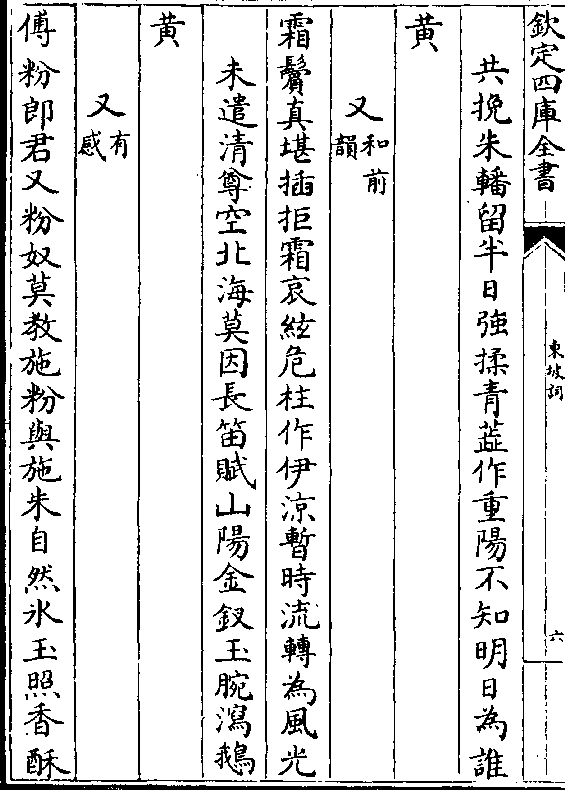 欽定四庫全書
東坡詞
六
共挽朱轓留半日強揉青蘂作重陽不知明日為誰
黄
又和前韻
霜鬢真堪插拒霜哀絃危柱作伊凉暫時流轉為風光
未遣清尊空北海莫因長笛賦山陽金釵玉腕瀉鵝
黄
又有感
傅粉郎君又粉奴莫教施粉與施朱自然氷玉照香酥